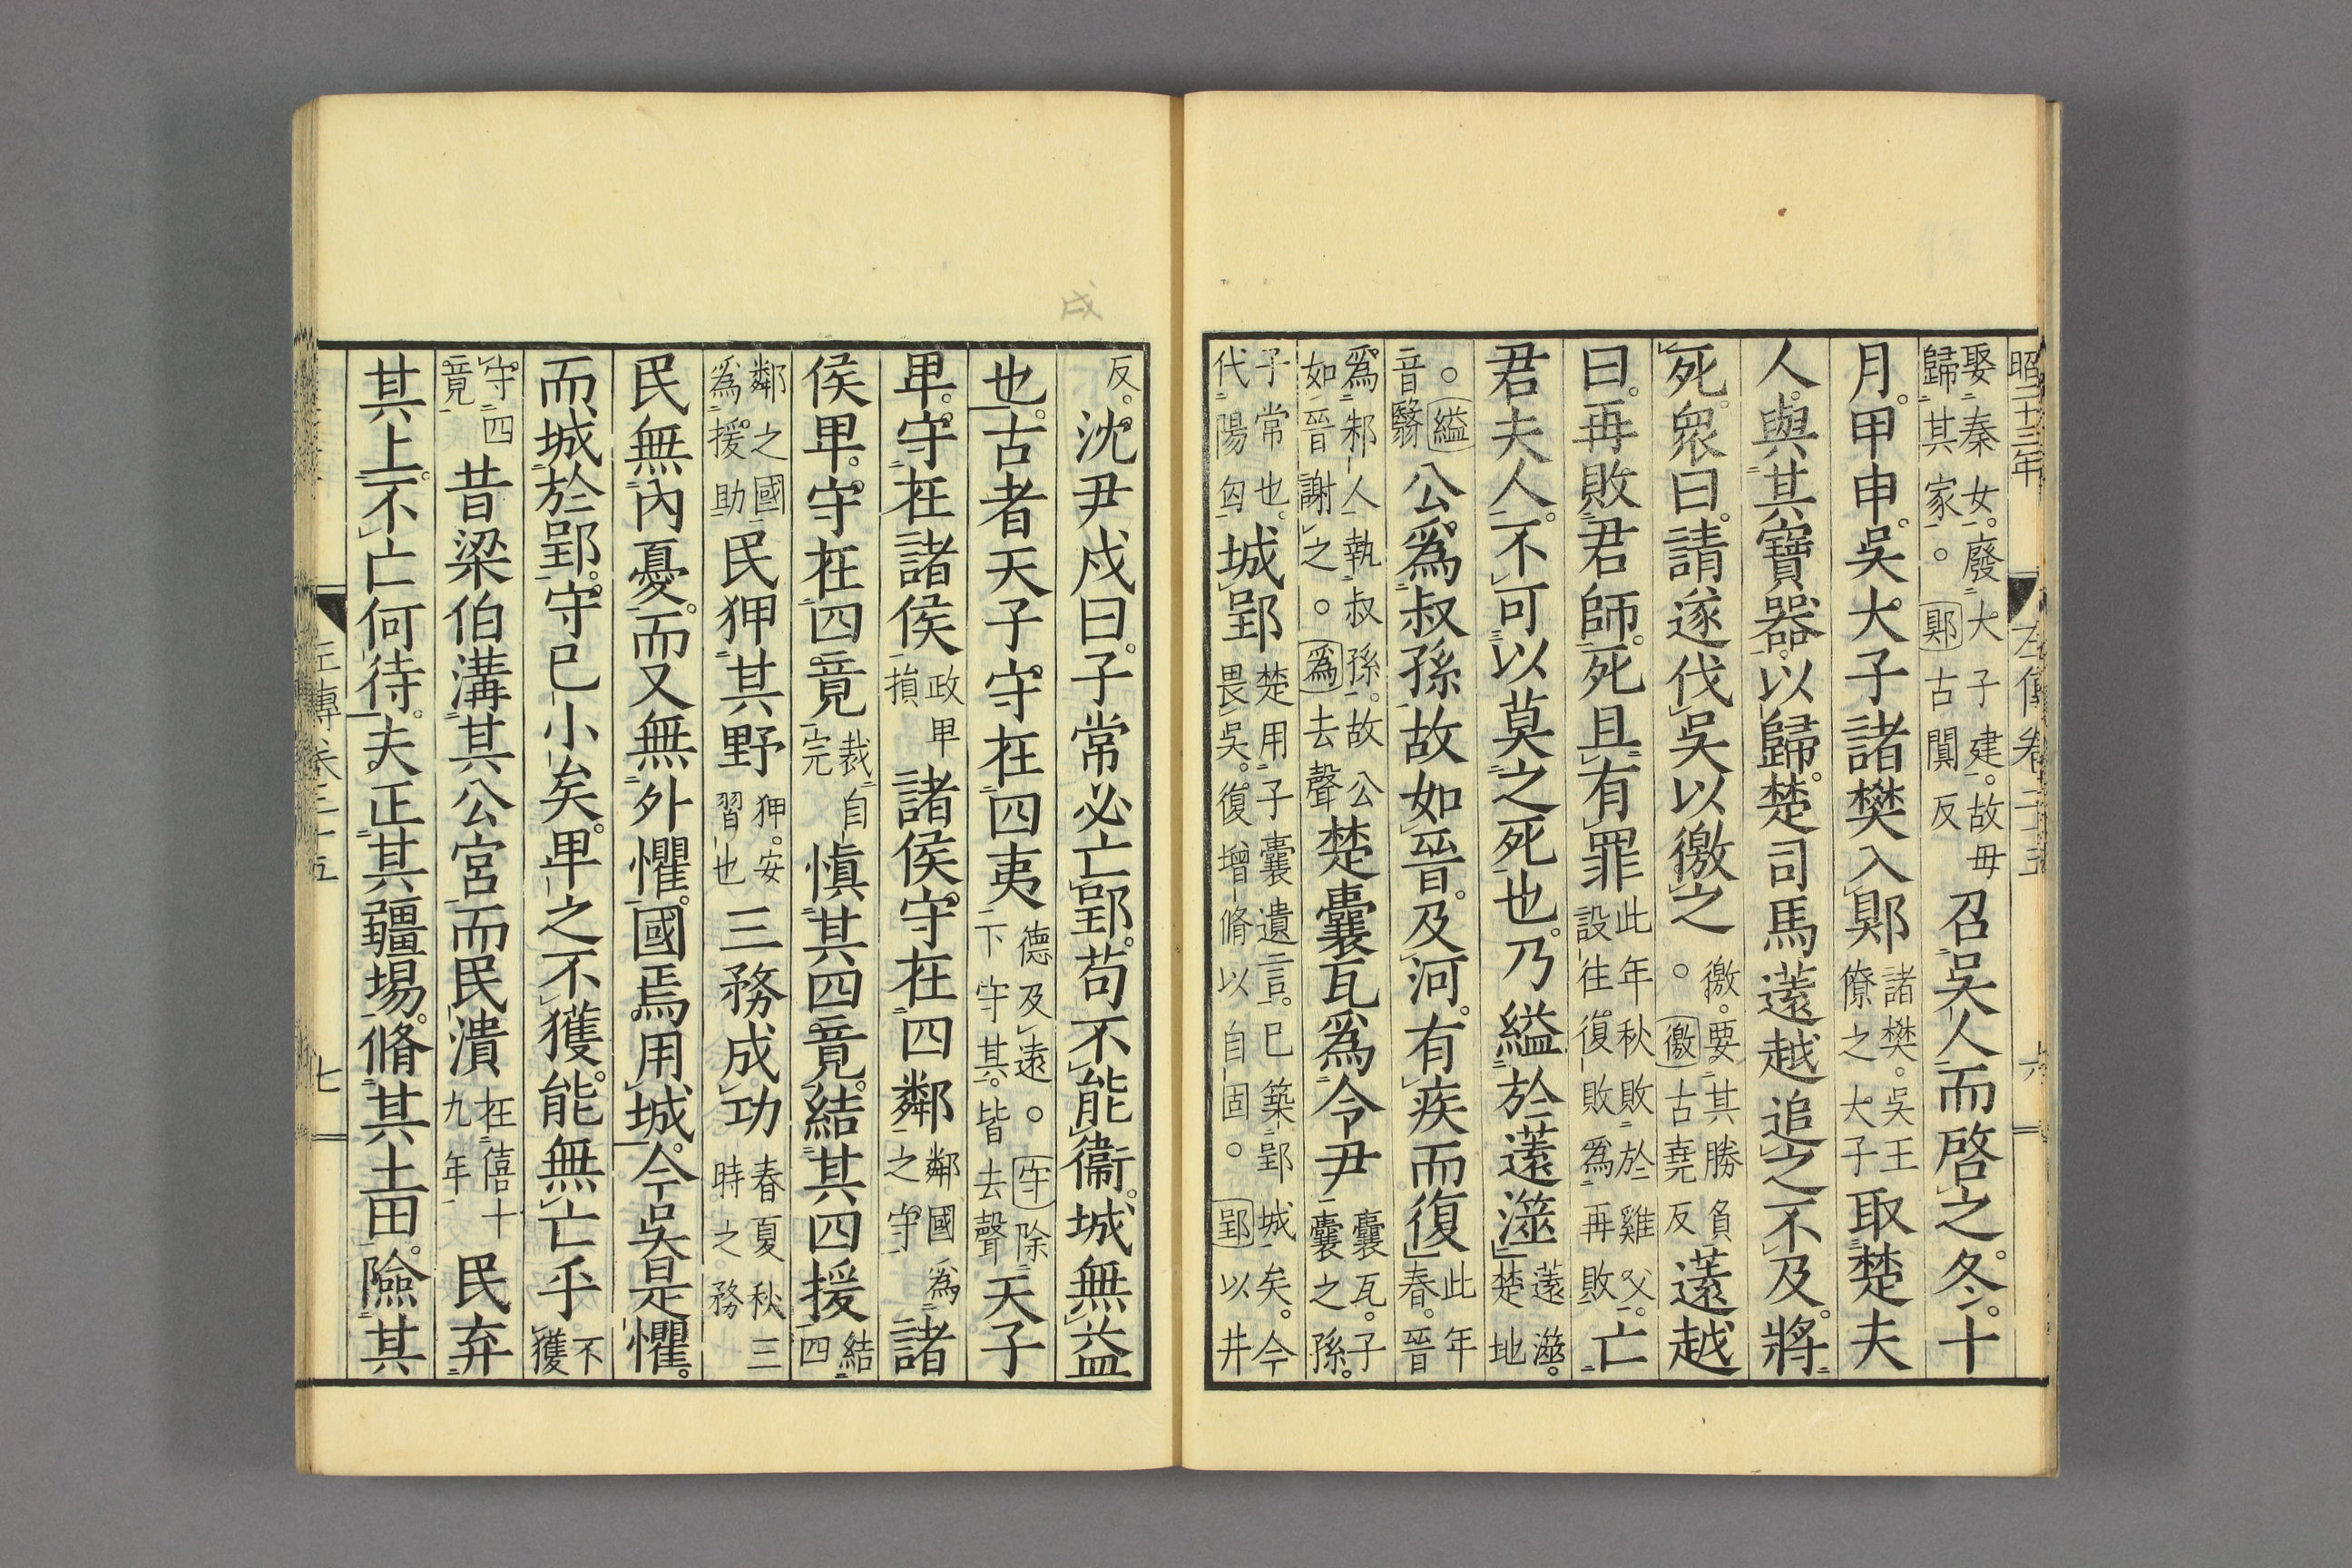 昭二十三年 左傳卷二十五 六
娶秦女。廢大子建。故母歸其家。○郹古闃反召吳人而啓之。冬。十
月。甲申。吳大子諸樊入郹諸樊。吳王僚之大子取楚夫
人。與其寶器。以歸。楚司馬薳越追之。不及。將
死。衆曰。請遂伐吳以徼之徼。要其勝負○徼古堯反薳越
曰。再敗君師。死且有罪此年秋敗於雞父。設往復敗爲再敗亡
君夫人。不可以莫之死也。乃縊於薳澨薳澨。楚地
○縊音翳公爲叔孫故如晉。及河。有疾而復此年春。晉
爲邾人執叔孫。故公如晉謝之○爲去聲楚囊瓦爲令尹囊瓦。子囊之孫。
子常也。代陽匃城郢楚用子囊遺言。已築郢城矣。今畏吳。復增脩以自固。○郢以井
反。沈尹戍曰。子常必亡郢。苟不能衞。城無益
也。古者天子守在四夷德及遠下○守除守其。皆去聲天子
卑。守在諸侯政卑損諸侯守在四鄰鄰國爲之守諸
侯卑。守在四竟裁自完愼其四竟。結其四援結四
鄰之國爲援助民狎其野狎。安習也三務成功春夏秋三時之務
民無內憂。而又無外懼。國焉用城。今吳是懼。
而城於郢。守已小矣。卑之不獲。能無亡乎不獲
守四竟昔梁伯溝其公宮而民潰在僖十九年民弃
其上。不亡何待。夫正其疆埸。脩其土田。險其
左傳卷二十五 七